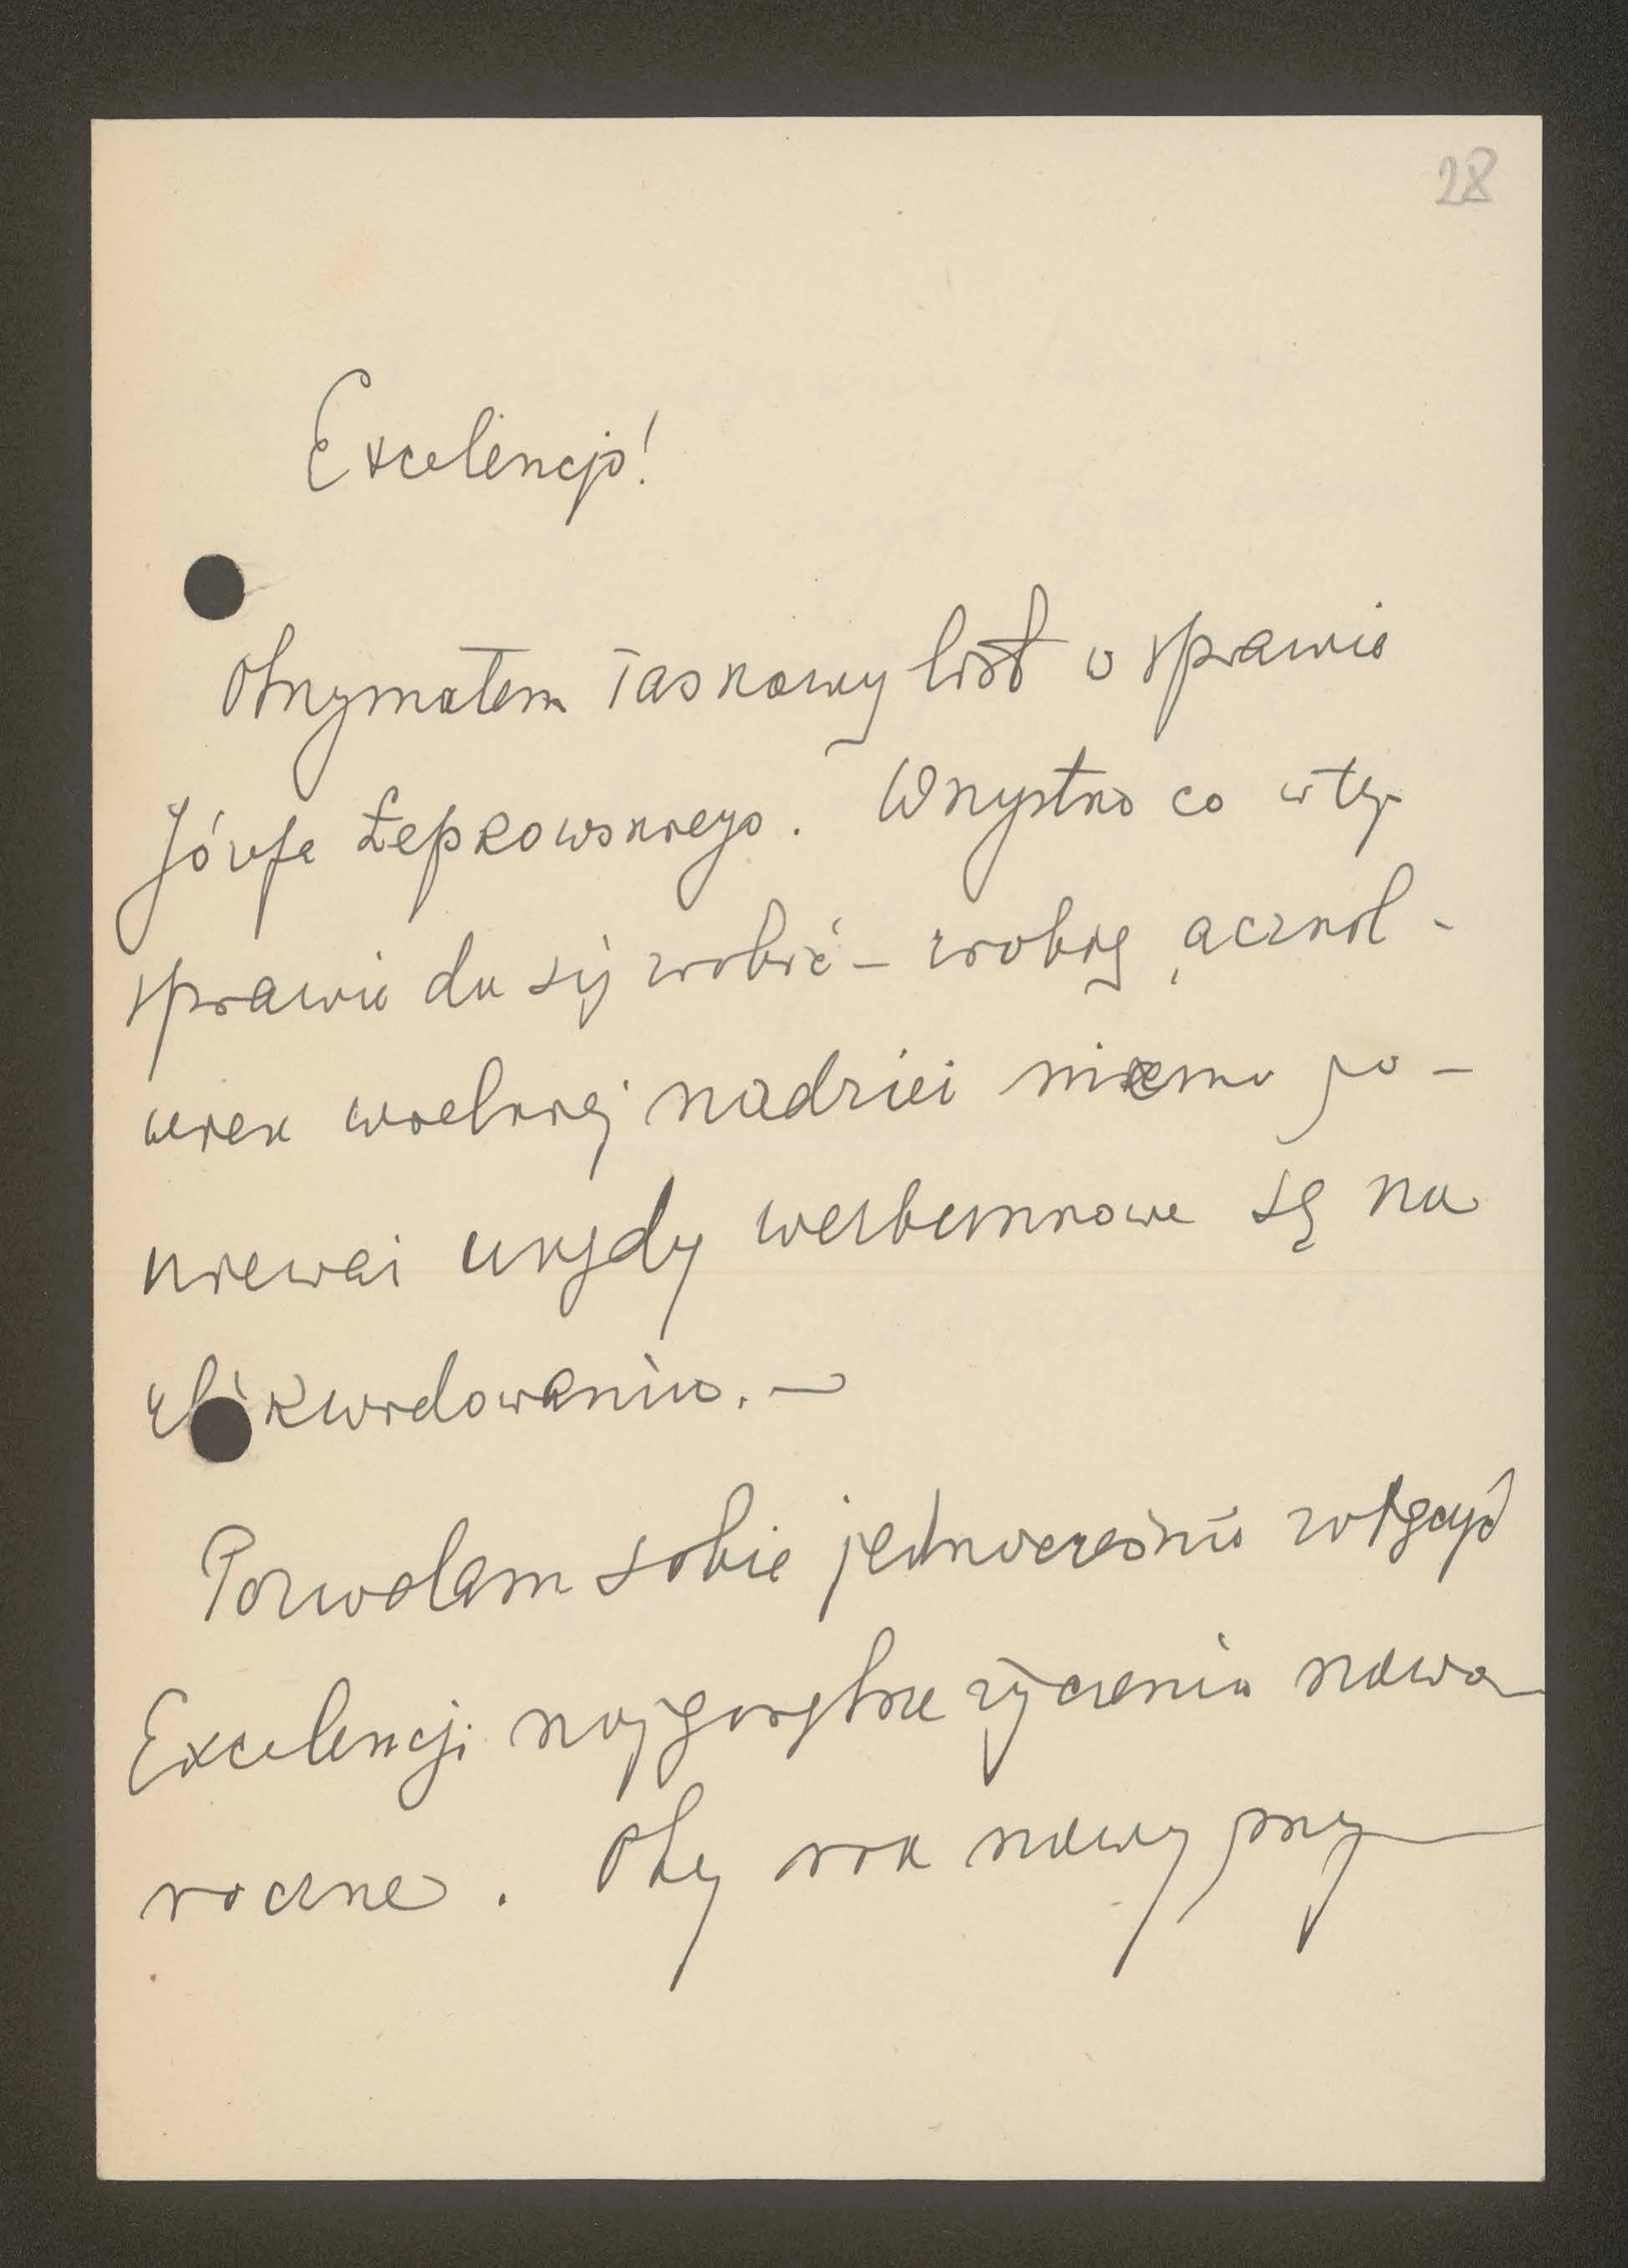 28
Excelencjo!
Otrzymałem łaskawy list w sprawie
Józefa Łepkowskiego. Wszystko co w tej
sprawie da się zrobić – zrobię, aczkol-
wiek wielkiej nadziei niema po-
nieważ urzędy werbunkowe są na
zlikwidowaniu. –
Pozwalam sobie jednocześnie złączyć
Excelencji najgorętsze życzenia nowo
roczne. Oby rok nowy przy